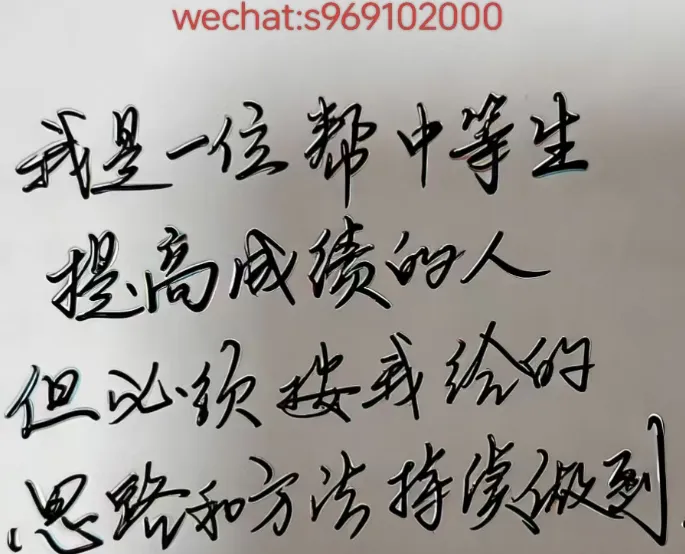 wechat:s969102000
我是一位帮中等生
提高成绩的人
但必须按我给的
思路和方法持续做到